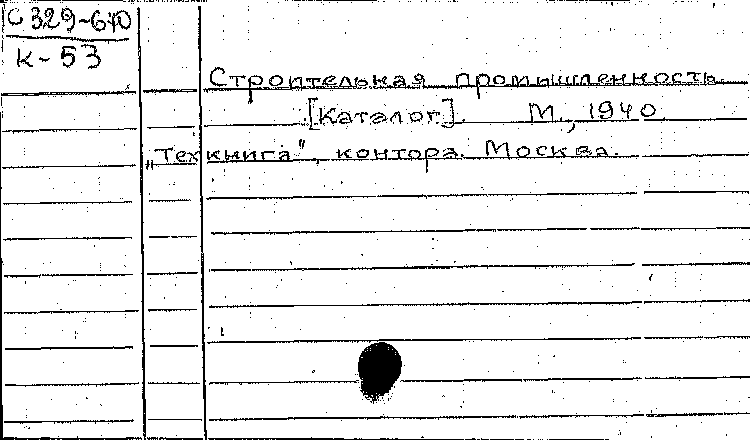 С 329-640
К-53
Строительная промышленность.
[Каталог]. М., 1940.
„Техкнига", контора. Москва.